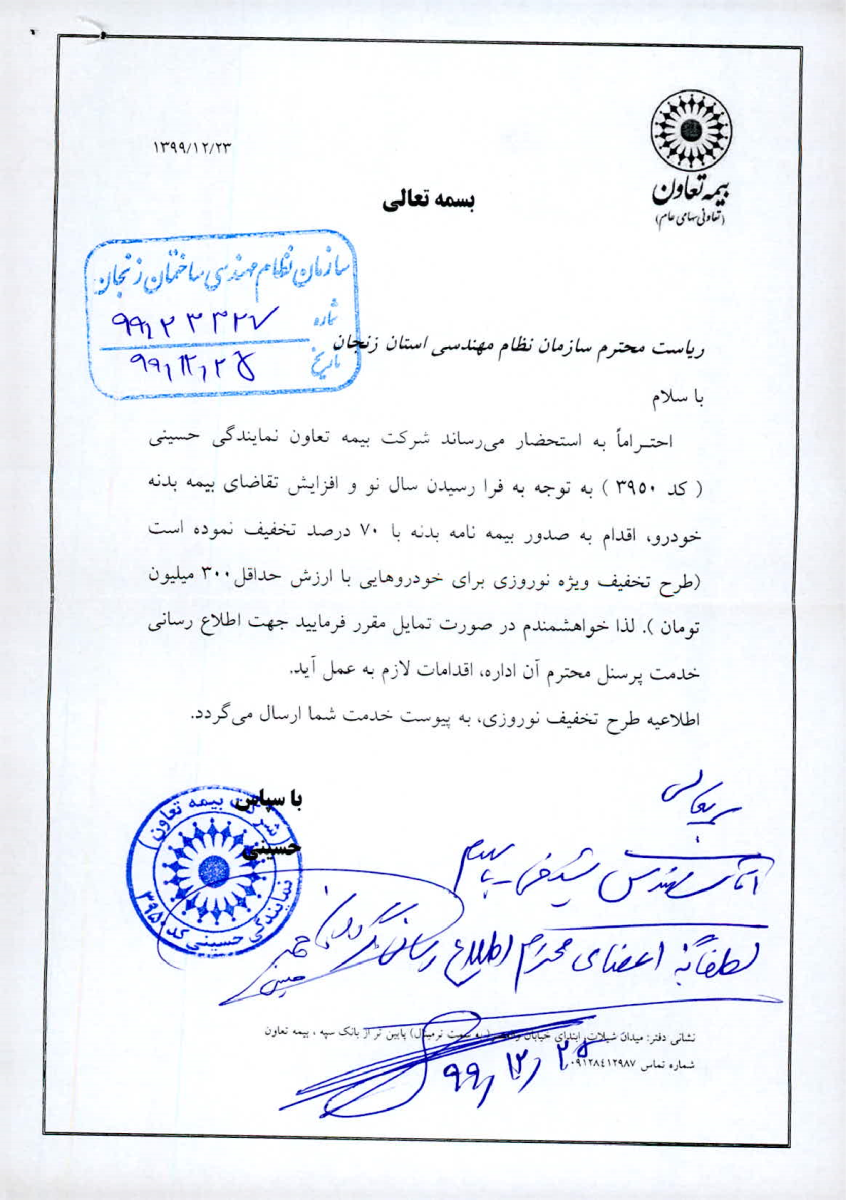 ۱۳۹۹/۱۲/۲۳
بیمه تعاون
(تعاونی سهامی عام)
بسمه تعالی
سازمان نظام مهندسی ساختمان زنجان
شماره ۹۹/۲۳۳۲۷
تاریخ ۹۹/۱۲/۲۵
ریاست محترم سازمان نظام مهندسی استان زنجان
با سلام
احتراماً به استحضار می‌رساند شرکت بیمه تعاون نمایندگی حسینی
( کد ۳۹۵۰ ) به توجه به فرا رسیدن سال نو و افزایش تقاضای بیمه بدنه
خودرو، اقدام به صدور بیمه نامه بدنه با ۷۰ درصد تخفیف نموده است
(طرح تخفیف ویژه نوروزی برای خودروهایی با ارزش حداقل۳۰۰ میلیون
تومان ). لذا خواهشمندم در صورت تمایل مقرر فرمایید جهت اطلاع رسانی
خدمت پرسنل محترم آن اداره، اقدامات لازم به عمل آید.
اطلاعیه طرح تخفیف نوروزی، به پیوست خدمت شما ارسال می‌گردد.
با سپاس
حسینی
شرکت بیمه تعاون
نمایندگی حسینی کد ۳۹۵۰
مهندس
لطفاً به اعضای محترم اطلاع رسانی گردد
نشانی دفتر: میدان شیلات، ابتدای خیابان (به سمت ترمینال) پایین تر از بانک سپه ، بیمه تعاون
شماره تماس ۰۹۱۲۸۴۱۲۹۸۷
۹۹/۱۲/۲۵